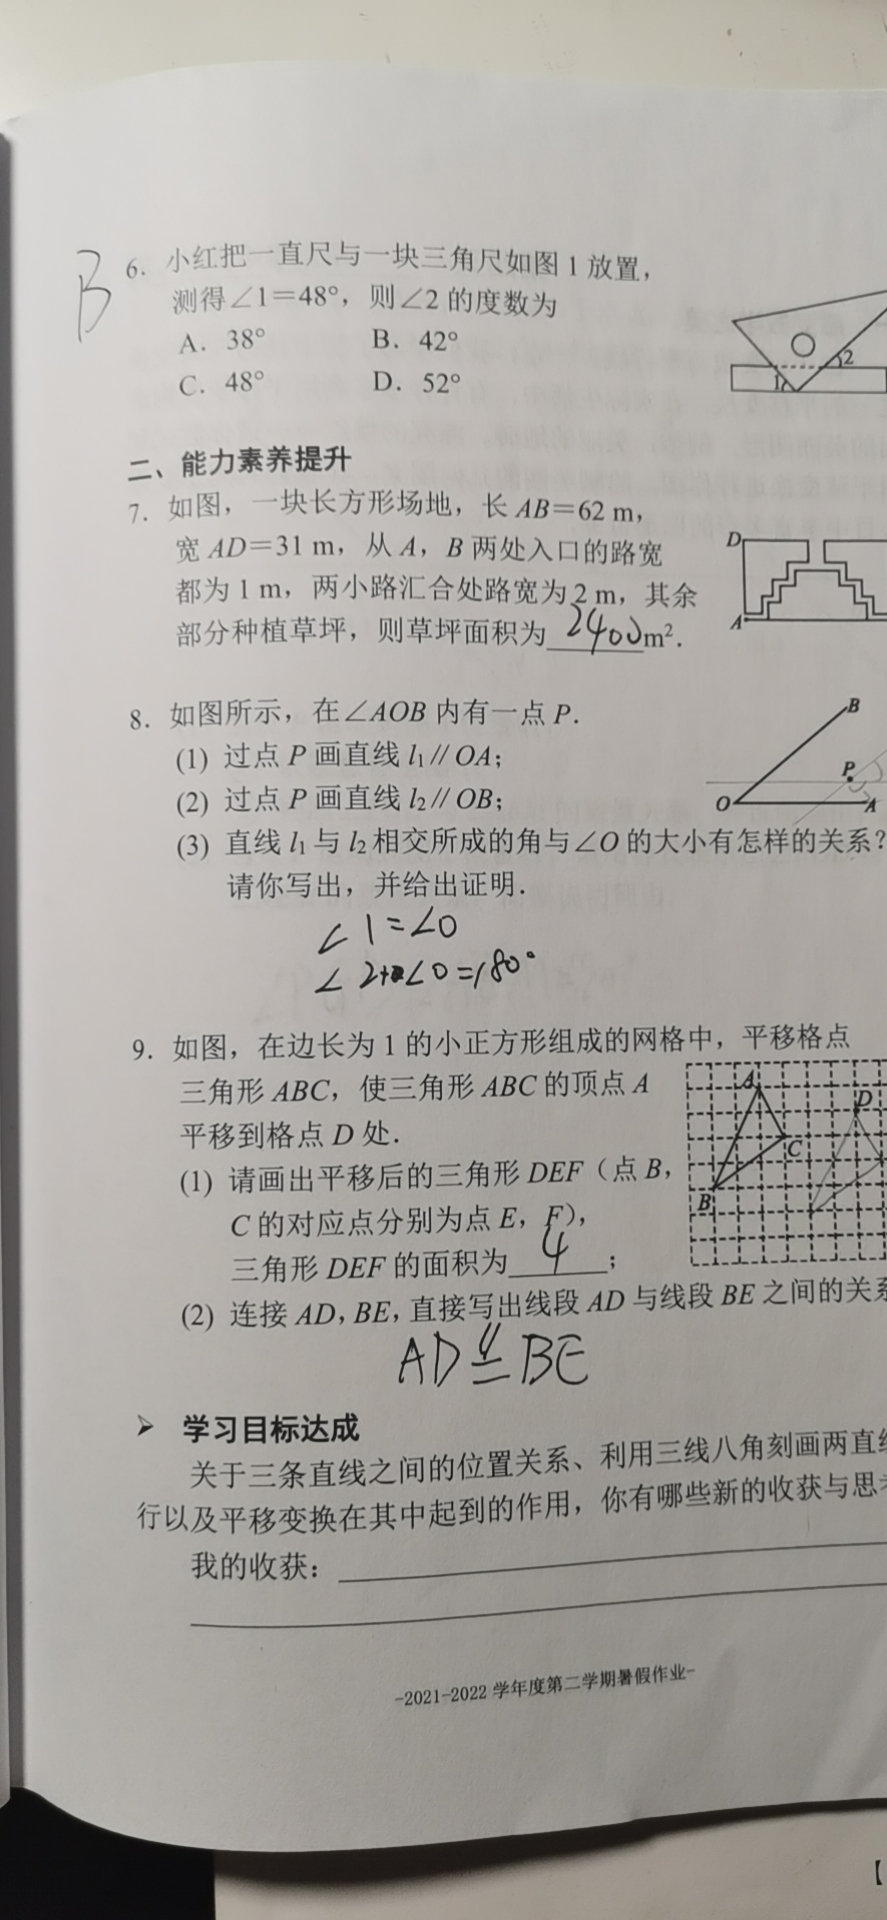 B
6. 小红把一直尺与一块三角尺如图 1 放置，
测得∠1=48°，则∠2 的度数为
A. 38° B. 42°
C. 48° D. 52°
1 2
二、能力素养提升
7. 如图，一块长方形场地，长 AB=62 m，
宽 AD=31 m，从 A，B 两处入口的路宽
都为 1 m，两小路汇合处路宽为 2 m，其余
部分种植草坪，则草坪面积为 2400 m².
D
A
8. 如图所示，在∠AOB 内有一点 P.
(1) 过点 P 画直线 l₁∥OA；
(2) 过点 P 画直线 l₂∥OB；
(3) 直线 l₁ 与 l₂ 相交所成的角与∠O 的大小有怎样的关系？
请你写出，并给出证明.
B
P
O A
∠1=∠O
∠2+∠O=180°
9. 如图，在边长为 1 的小正方形组成的网格中，平移格点
三角形 ABC，使三角形 ABC 的顶点 A
平移到格点 D 处.
(1) 请画出平移后的三角形 DEF（点 B，
C 的对应点分别为点 E，F），
三角形 DEF 的面积为 4 ；
(2) 连接 AD，BE，直接写出线段 AD 与线段 BE 之间的关系
A
D
C
B
AD∥=BE
➢ 学习目标达成
关于三条直线之间的位置关系、利用三线八角刻画两直线
行以及平移变换在其中起到的作用，你有哪些新的收获与思考
我的收获：
-2021-2022 学年度第二学期暑假作业-
【